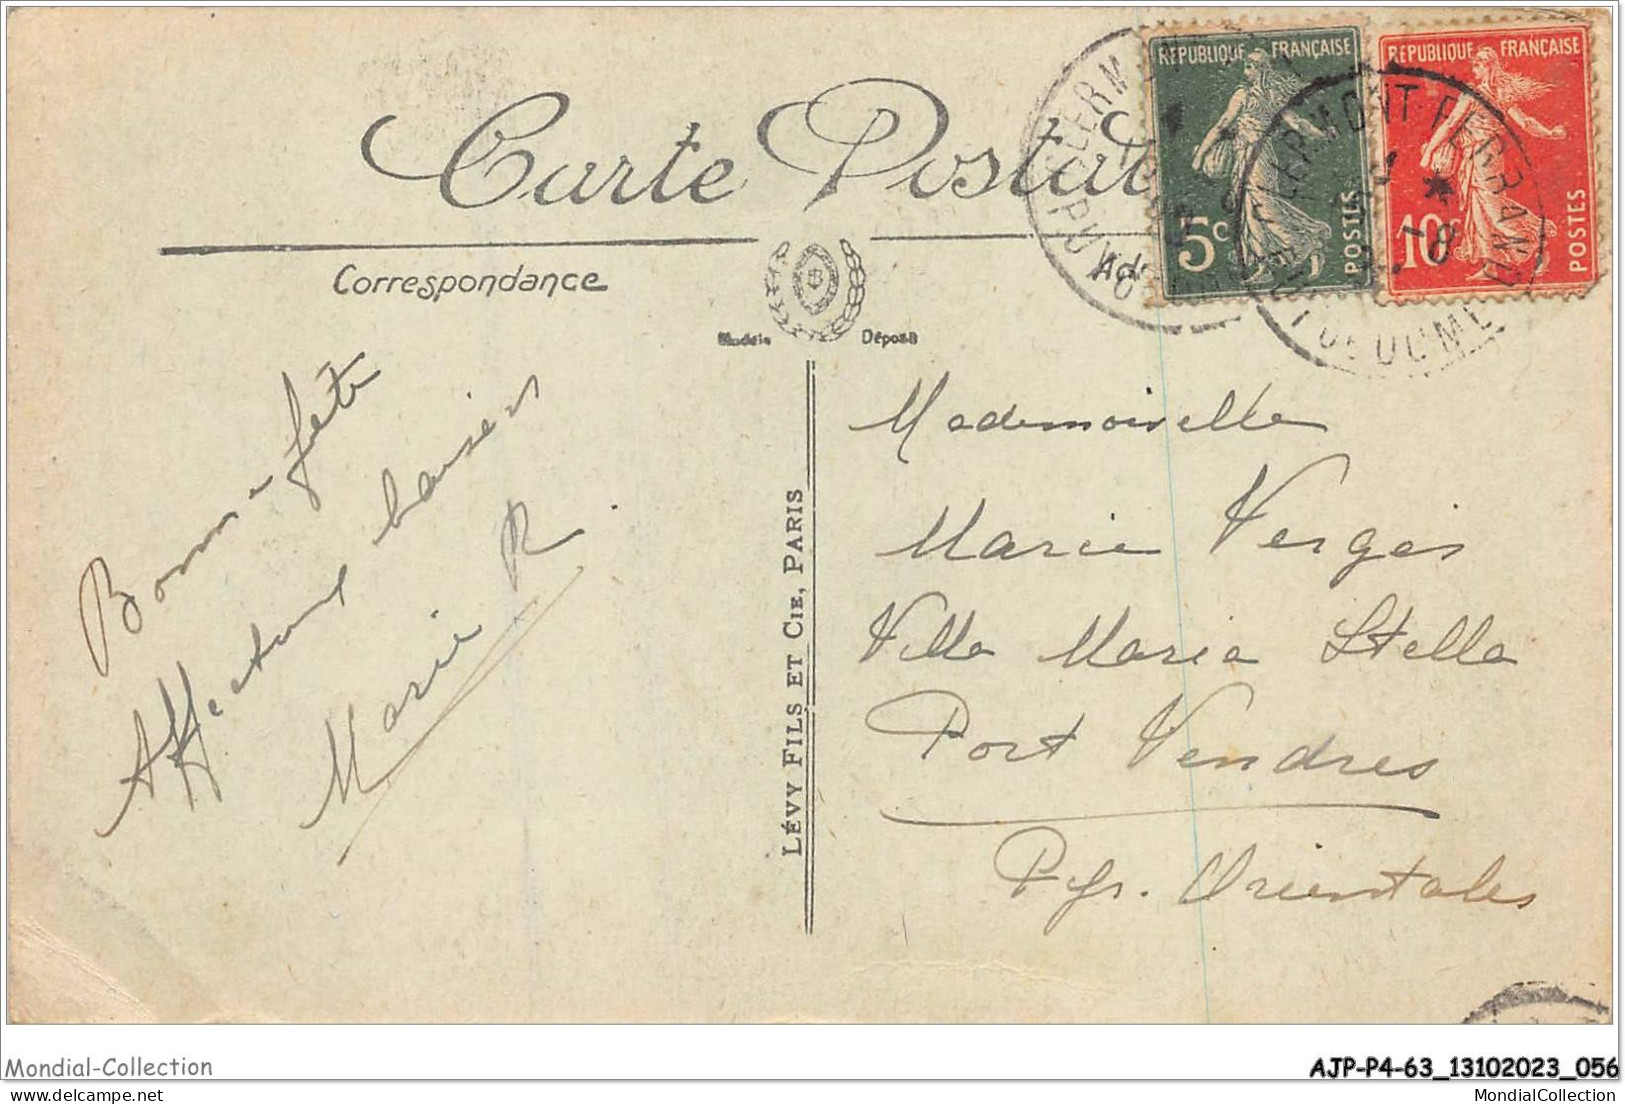 Carte Postale
Correspondance
Modèle Déposé
RÉPUBLIQUE FRANÇAISE
5c
POSTES
RÉPUBLIQUE FRANÇAISE
10c
POSTES
CLERMONT-FERRAND
PUY DE DOME
Bonne fête
Affectueux baisers
Marie R.
LÉVY FILS ET CIE, PARIS
Mademoiselle
Marie Vergès
Villa Maria Stella
Port Vendres
Pyr. Orientales
Mondial-Collection
AJP-P4-63_13102023_056
mondialcollection.net
MondialCollection